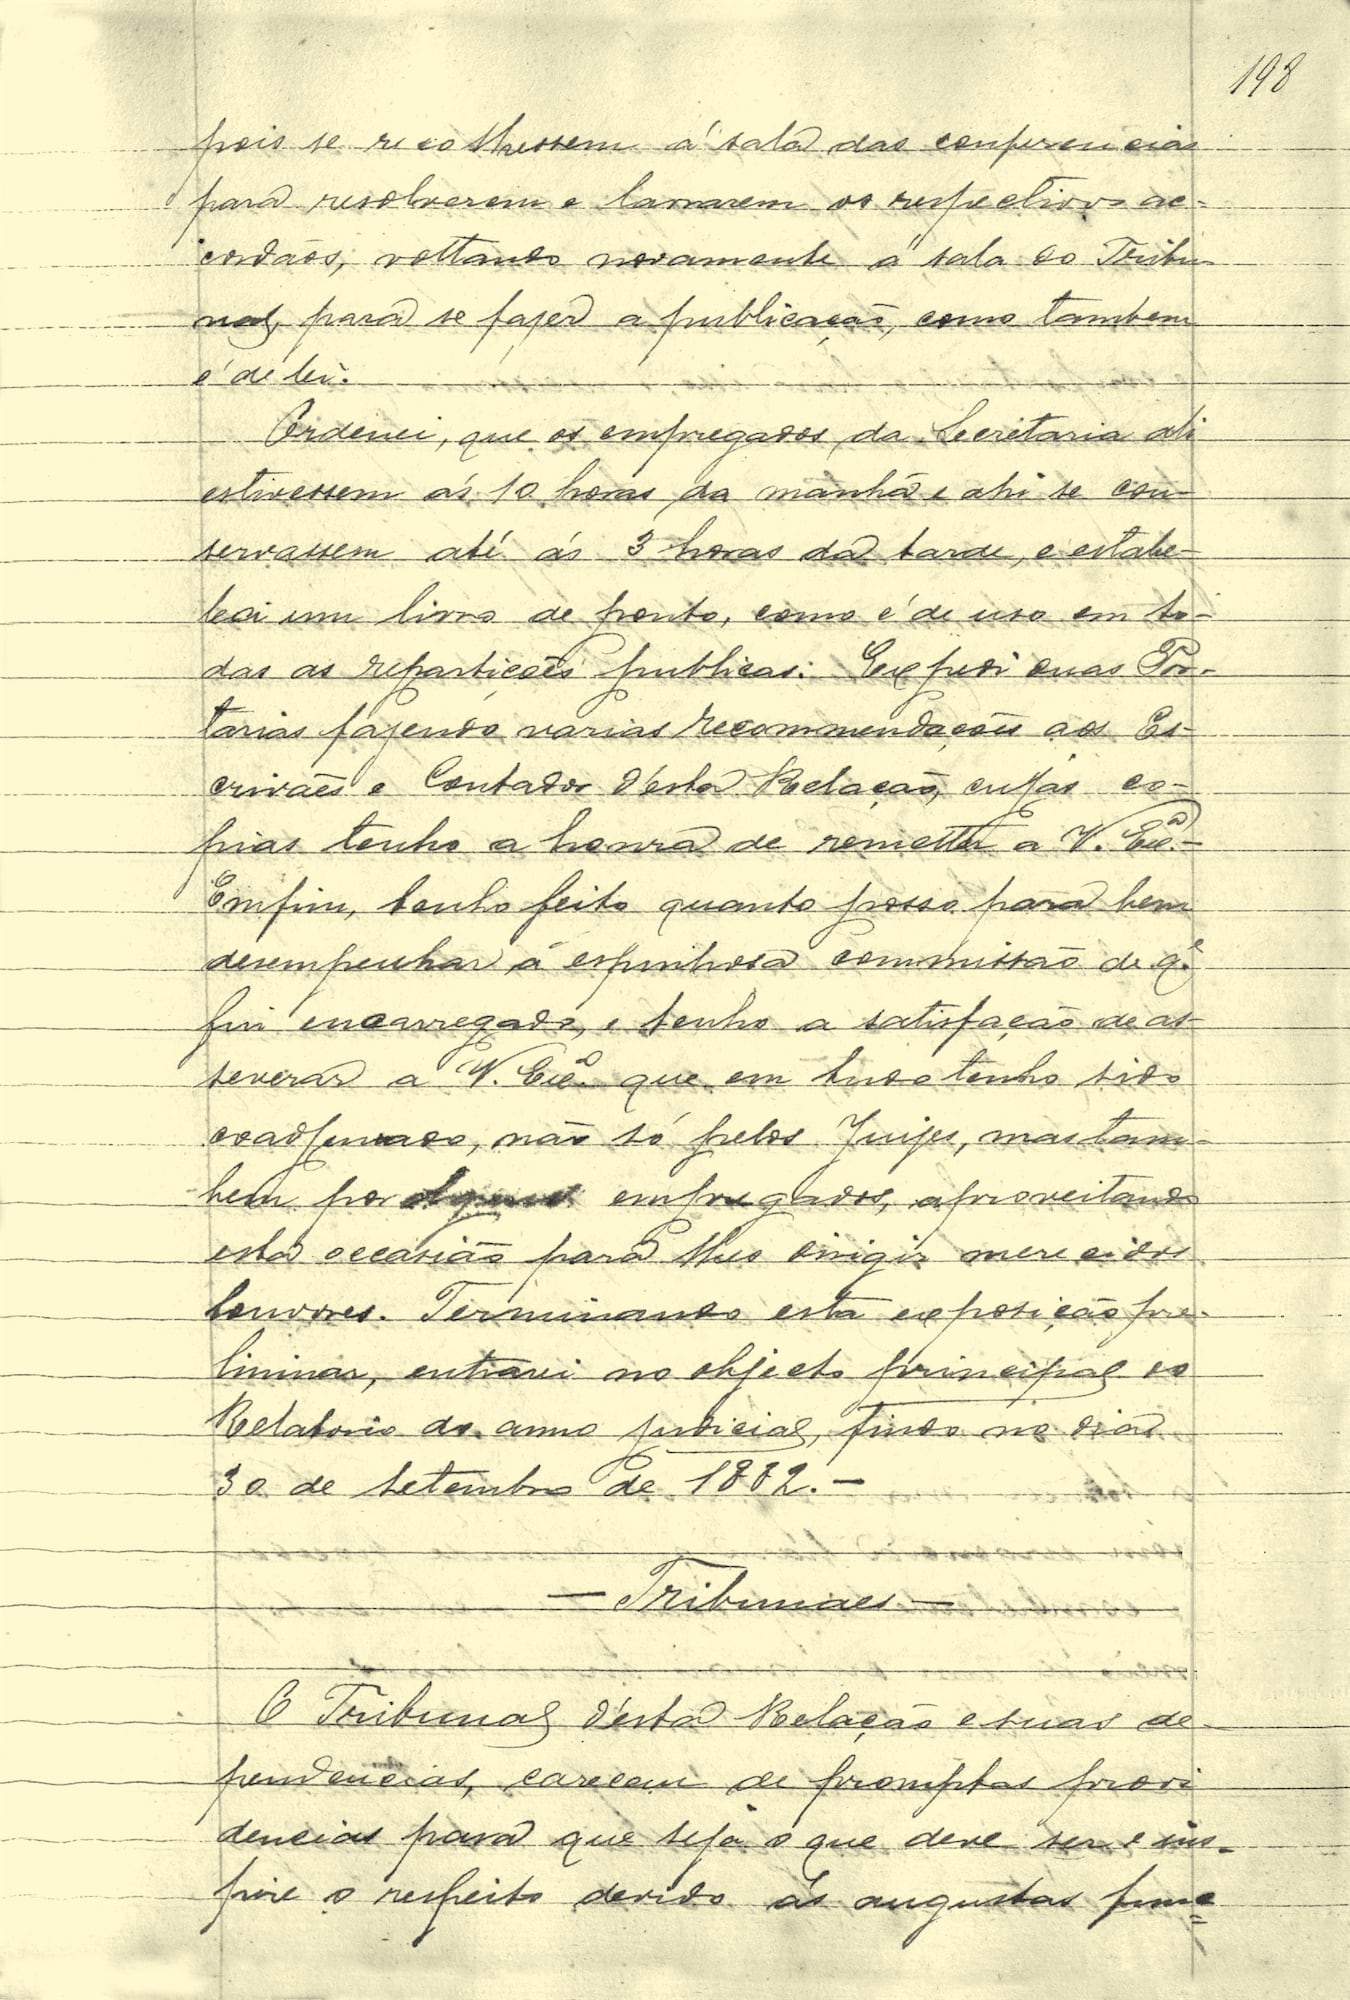 198
pois se recolhessem á sala das conferencias
para resolverem e lavrarem os respectivos ac-
cordãos, voltando novamente á sala do Tribu-
nal, para se fazer a publicação, como tambem
é de lei.
Ordenei, que os empregados da Secretaria ali
estivessem ás 10 horas da manhã e ahi se con-
servassem até ás 3 horas da tarde, e estabe-
leci um livro de ponto, como é de uso em to-
das as repartições publicas. Expedi duas Por-
tarias fazendo varias recommendações aos Es-
crivães e Contador d'esta Relação, cujas co-
pias tenho a honra de remetter a V. Exª.-
Emfim, tenho feito quanto posso para bem
desempenhar a espinhosa commissão de q̃
fui encarregado, e tenho a satisfação de as-
severar a V. Exª. que em tudo tenho sido
coadjuvado, não só pelos Juizes, mas tam-
bem por empregados, aproveitando
esta occasião para lhes dirigir merecidos
louvores. Terminando esta exposição pre-
liminar, entrarei no objecto principal do
Relatorio do anno judicial, findo no dia
30 de Setembro de 1882.-
- Tribunaes -
O Tribunal d'esta Relação e suas de-
pendencias, carecem de promptas provi
dencias para que seja o que deve ser e ins-
pire o respeito devido ás augustas func=